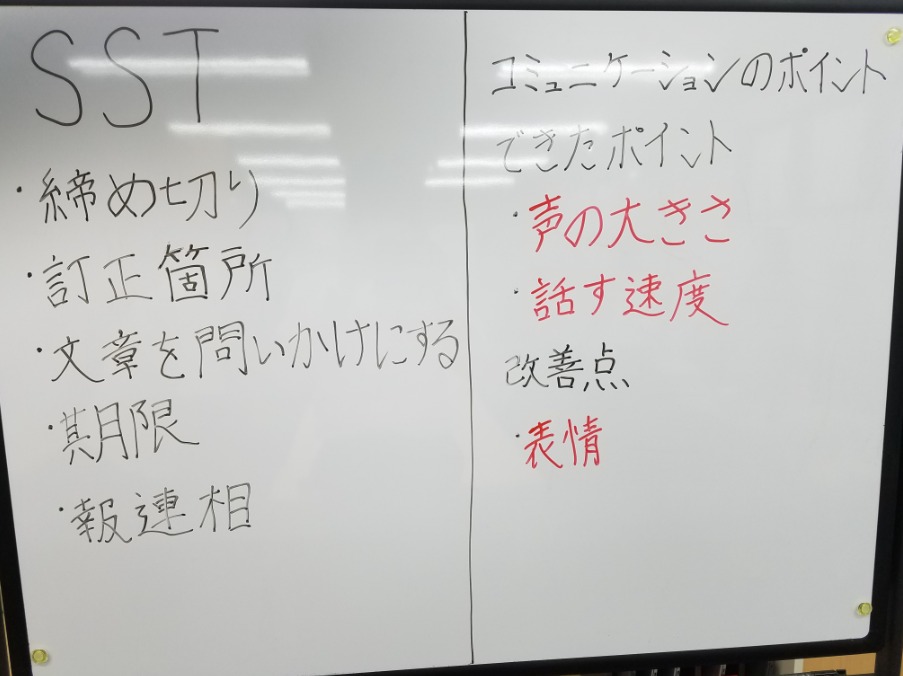 SST
・締め切り
・訂正箇所
・文章を問いかけにする
・期限
・報連相
コミュニケーションのポイント
できたポイント
・声の大きさ
・話す速度
改善点
・表情